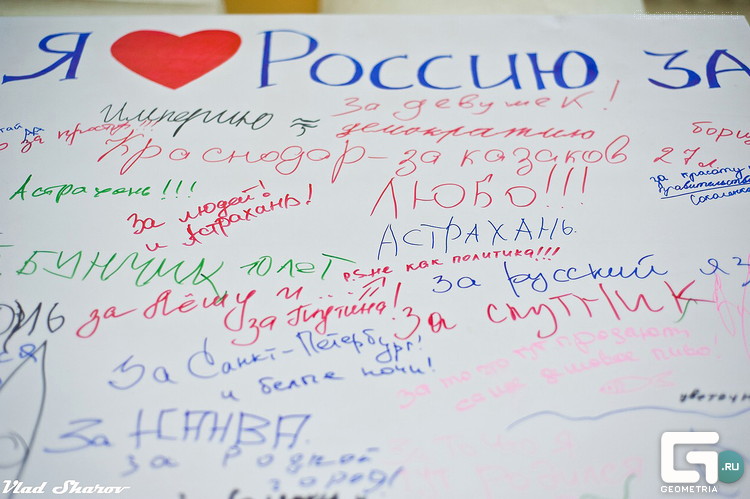 Я ❤ Россию ЗА
Империю ≈
за девушек!
демократию
Краснодар-за казаков
Астрахань!!!
за людей!
и Астрахань!
ЛЮБО!!!
27
за красоту
правительства
АСТРАХАНЬ.
БУНЧИК ЮЛЕТ
P.S. не как политика!!!
за русский яз
за Лёшу и
за Путина!
За спутник
16
За Санкт-Петербург!
и белые ночи!
за то что тут продают
самое дешовое пиво!
цветочн
За НАНВА.
за родной
город!
Vlad Sharov
G
.RU
GEOMETRIA